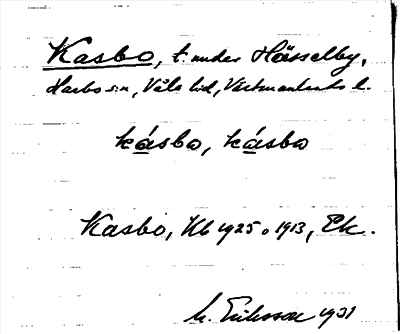 Kasbo, t. under Hässelby,
Harbo s:n, Våla hd, Västmanlands l.
kásbo, kásbo
Kasbo, Kb 1925 o 1913, Ek.
M. Eriksson 1931